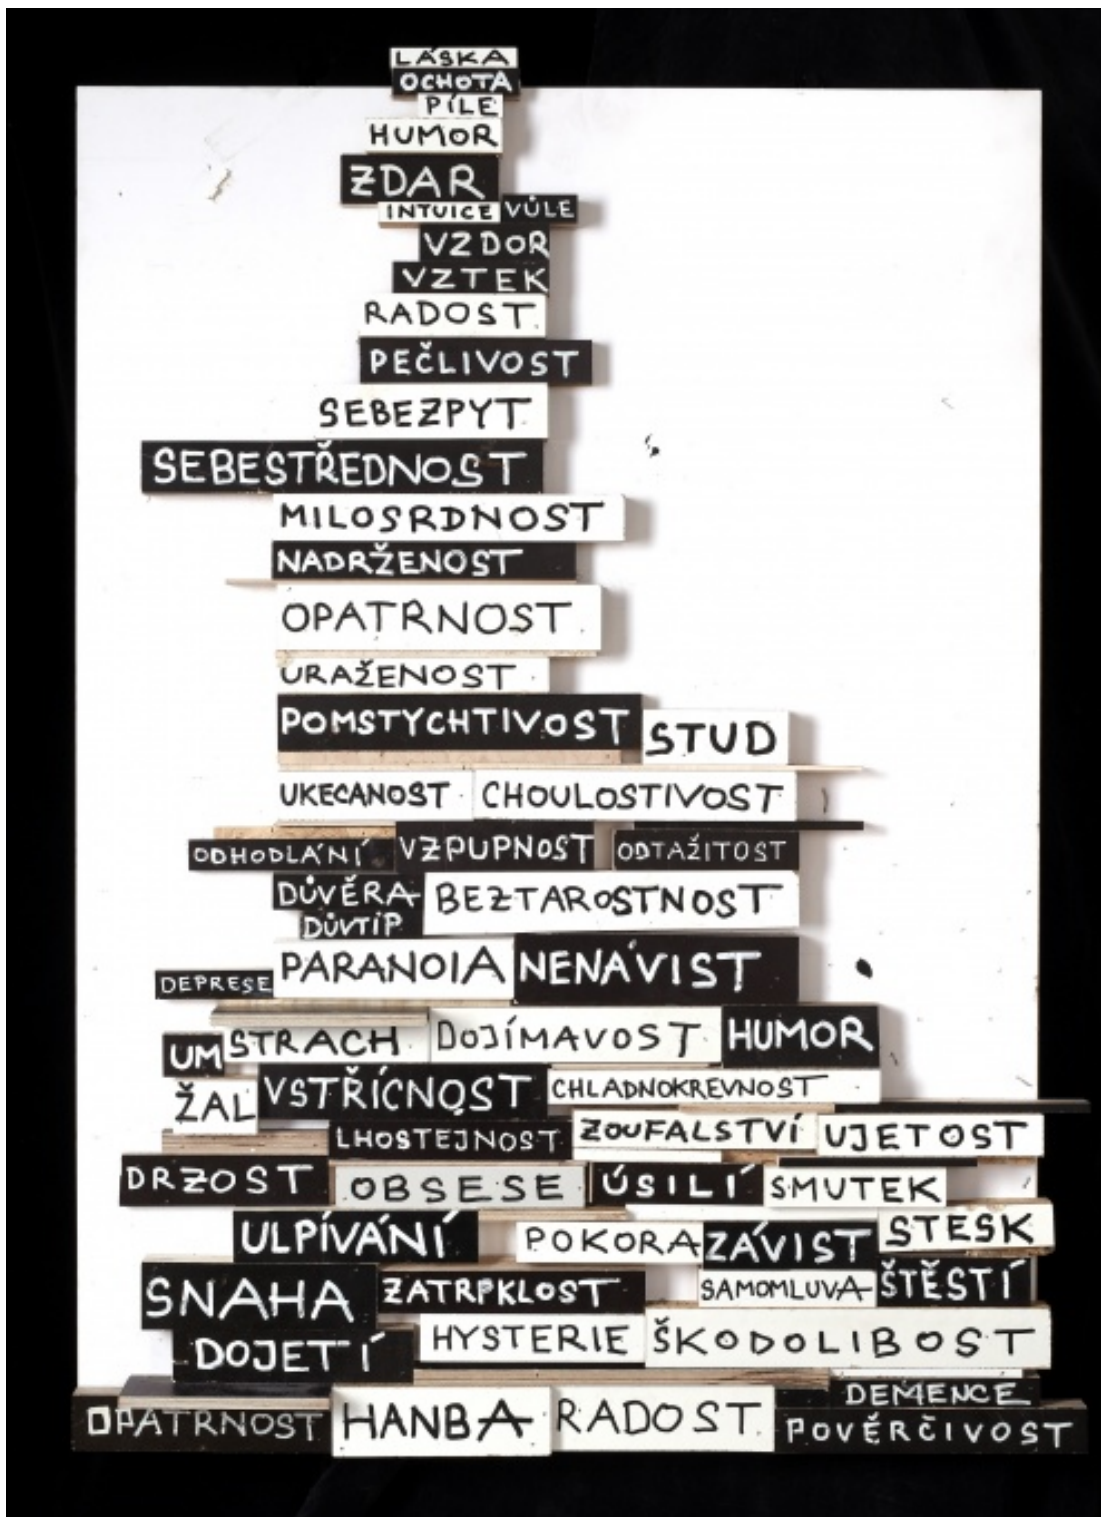 LÁSKA
OCHOTA
PÍLE
HUMOR
ZDAR
INTUICE VŮLE
VZDOR
VZTEK
RADOST
PEČLIVOST
SEBEZPYT
SEBESTŘEDNOST
MILOSRDNOST
NADRŽENOST
OPATRNOST
URAŽENOST
POMSTYCHTIVOST STUD
UKECANOST CHOULOSTIVOST
ODHODLÁNÍ VZPUPNOST ODTAŽITOST
DŮVĚRA BEZTAROSTNOST
DŮVTIP
DEPRESE PARANOIA NENÁVIST
UM STRACH DOJÍMAVOST HUMOR
ŽAL VSTŘÍCNOST CHLADNOKREVNOST
LHOSTEJNOST ZOUFALSTVÍ UJETOST
DRZOST OBSESE ÚSILÍ SMUTEK
ULPÍVÁNÍ POKORA ZÁVIST STESK
SNAHA ZATRPKLOST SAMOMLUVA ŠTĚSTÍ
DOJETÍ HYSTERIE ŠKODOLIBOST
DEMENCE
OPATRNOST HANBA RADOST POVĚRČIVOST